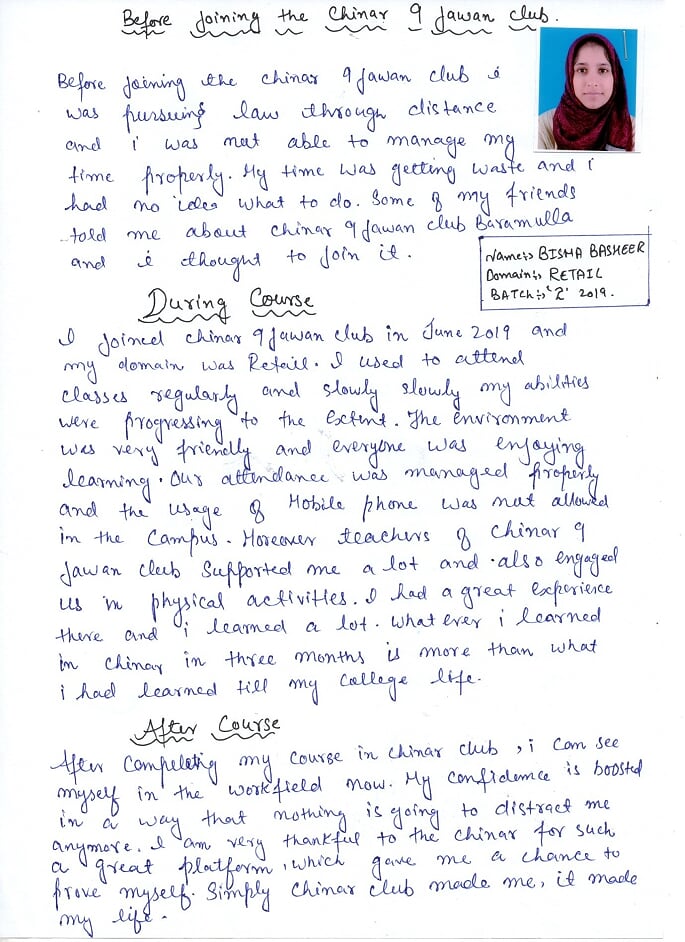 Before Joining the Chinar 9 Jawan Club.
Before joining the chinar 9 Jawan club i
was pursuing law through distance
and i was not able to manage my
time properly. My time was getting waste and i
had no idea what to do. Some of my friends
told me about chinar 9 Jawan club Baramulla
and i thought to join it.
Name:> BISMA BASHEER
Domain:> RETAIL
BATCh:> 'Z' 2019.
During Course
I joined chinar 9 Jawan club in June 2019 and
my domain was Retail. I used to attend
classes regularly and slowly slowly my abilities
were progressing to the extent. The environment
was very friendly and everyone was enjoying
learning. Our attendance was managed properly
and the usage of Mobile phone was not allowed
in the Campus. Moreover teachers of Chinar 9
Jawan Club Supported me a lot and also engaged
us in physical activities. I had a great experience
there and i learned a lot. What ever i learned
in chinar in three months is more than what
i had learned till my college life.
After Course
After Compeleting my course in chinar club, i can see
myself in the workfield now. My confidence is boosted
in a way that nothing is going to distract me
anymore. I am very thankful to the chinar for such
a great platform, which gave me a chance to
prove myself. Simply chinar club made me, it made
my life.